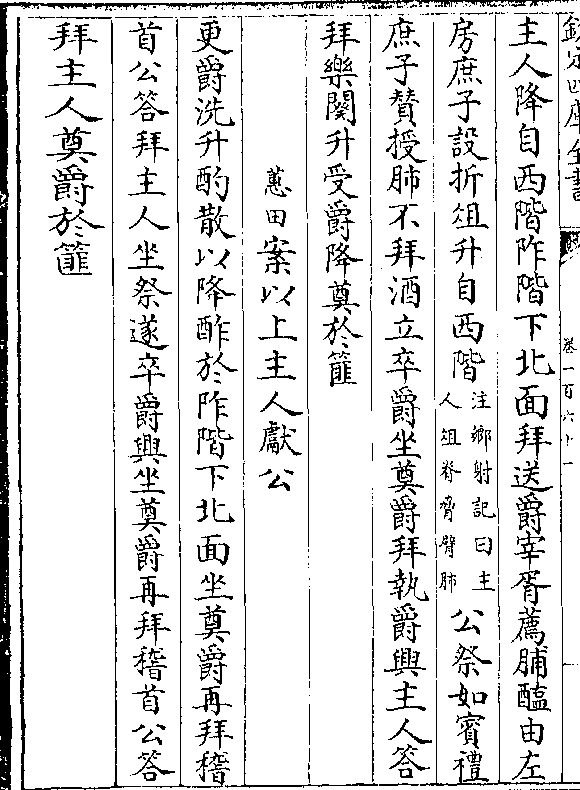 欽定四庫全書
卷一百六十一
主人降自西階阼階下北面拜送爵宰胥薦脯醢由左
房庶子設折俎升自西階注鄉射記曰主人俎脊脅臂肺公祭如賓禮
庶子贊授肺不拜酒立卒爵坐奠爵拜執爵興主人答
拜樂闋升受爵降奠於篚
蕙田案以上主人獻公
更爵洗升酌散以降酢於阼階下北面坐奠爵再拜稽
首公答拜主人坐祭遂卒爵興坐奠爵再拜稽首公答
拜主人奠爵於篚